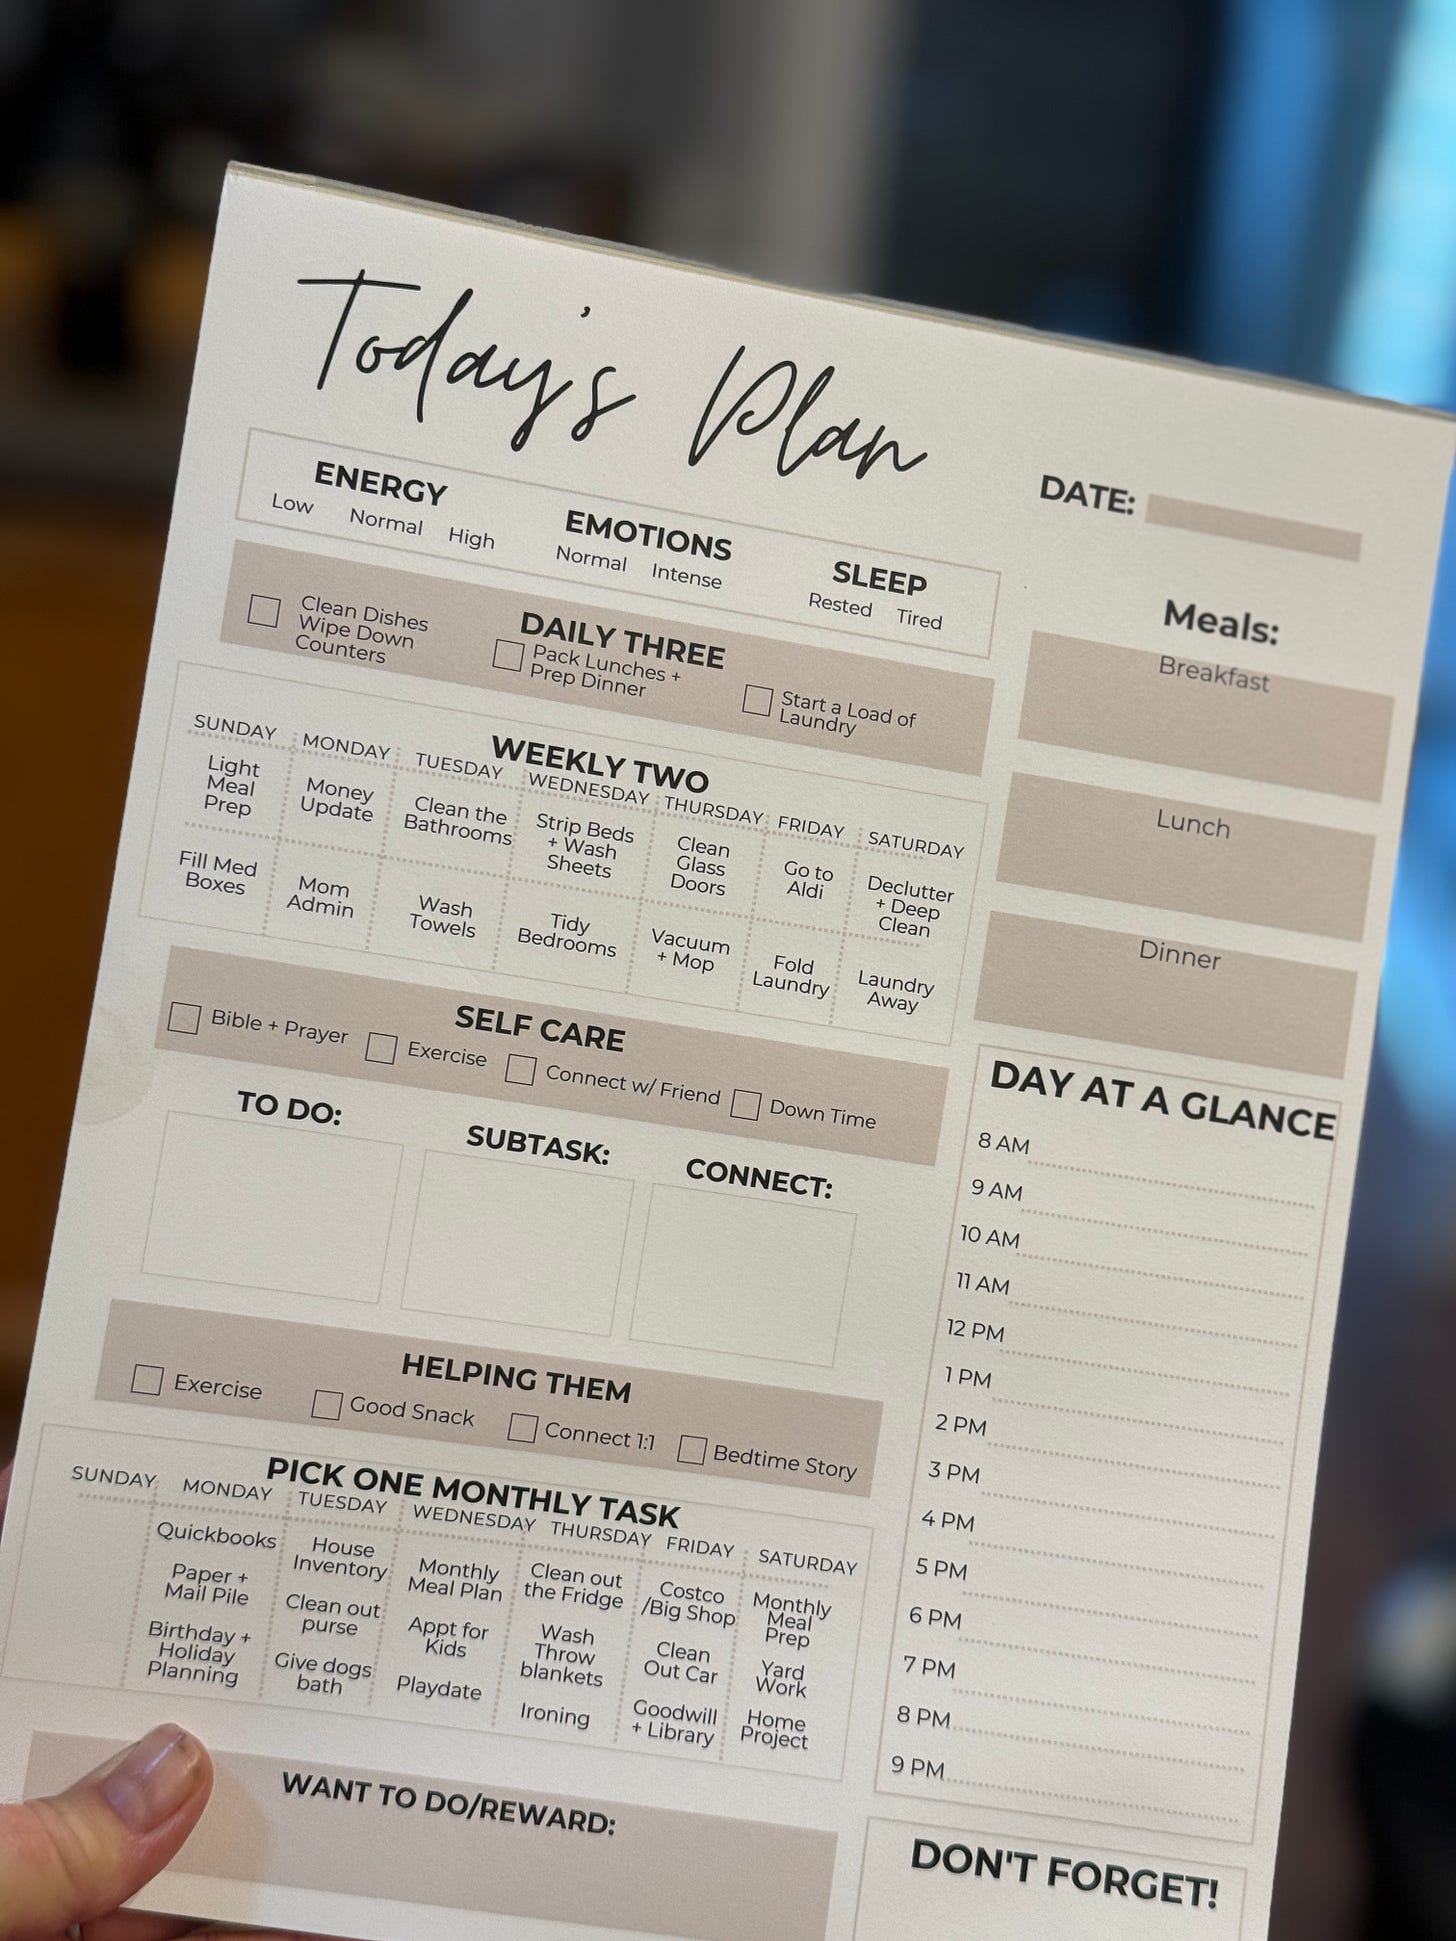 Today's Plan
DATE:
ENERGY
Low Normal High
EMOTIONS
Normal Intense
SLEEP
Rested Tired
DAILY THREE
Clean Dishes
Wipe Down
Counters
Pack Lunches +
Prep Dinner
Start a Load of
Laundry
WEEKLY TWO
SUNDAY
Light
Meal
Prep
Fill Med
Boxes
MONDAY
Money
Update
Mom
Admin
TUESDAY
Clean the
Bathrooms
Wash
Towels
WEDNESDAY
Strip Beds
+ Wash
Sheets
Tidy
Bedrooms
THURSDAY
Clean
Glass
Doors
Vacuum
+ Mop
FRIDAY
Go to
Aldi
Fold
Laundry
SATURDAY
Declutter
+ Deep
Clean
Laundry
Away
SELF CARE
Bible + Prayer
Exercise
Connect w/ Friend
Down Time
TO DO:
SUBTASK:
CONNECT:
HELPING THEM
Exercise
Good Snack
Connect 1:1
Bedtime Story
PICK ONE MONTHLY TASK
SUNDAY
MONDAY
Quickbooks
Paper +
Mail Pile
Birthday +
Holiday
Planning
TUESDAY
House
Inventory
Clean out
purse
Give dogs
bath
WEDNESDAY
Monthly
Meal Plan
Appt for
Kids
Playdate
THURSDAY
Clean out
the Fridge
Wash
Throw
blankets
Ironing
FRIDAY
Costco
/Big Shop
Clean
Out Car
Goodwill
+ Library
SATURDAY
Monthly
Meal
Prep
Yard
Work
Home
Project
WANT TO DO/REWARD:
Meals:
Breakfast
Lunch
Dinner
DAY AT A GLANCE
8 AM
9 AM
10 AM
11 AM
12 PM
1 PM
2 PM
3 PM
4 PM
5 PM
6 PM
7 PM
8 PM
9 PM
DON'T FORGET!